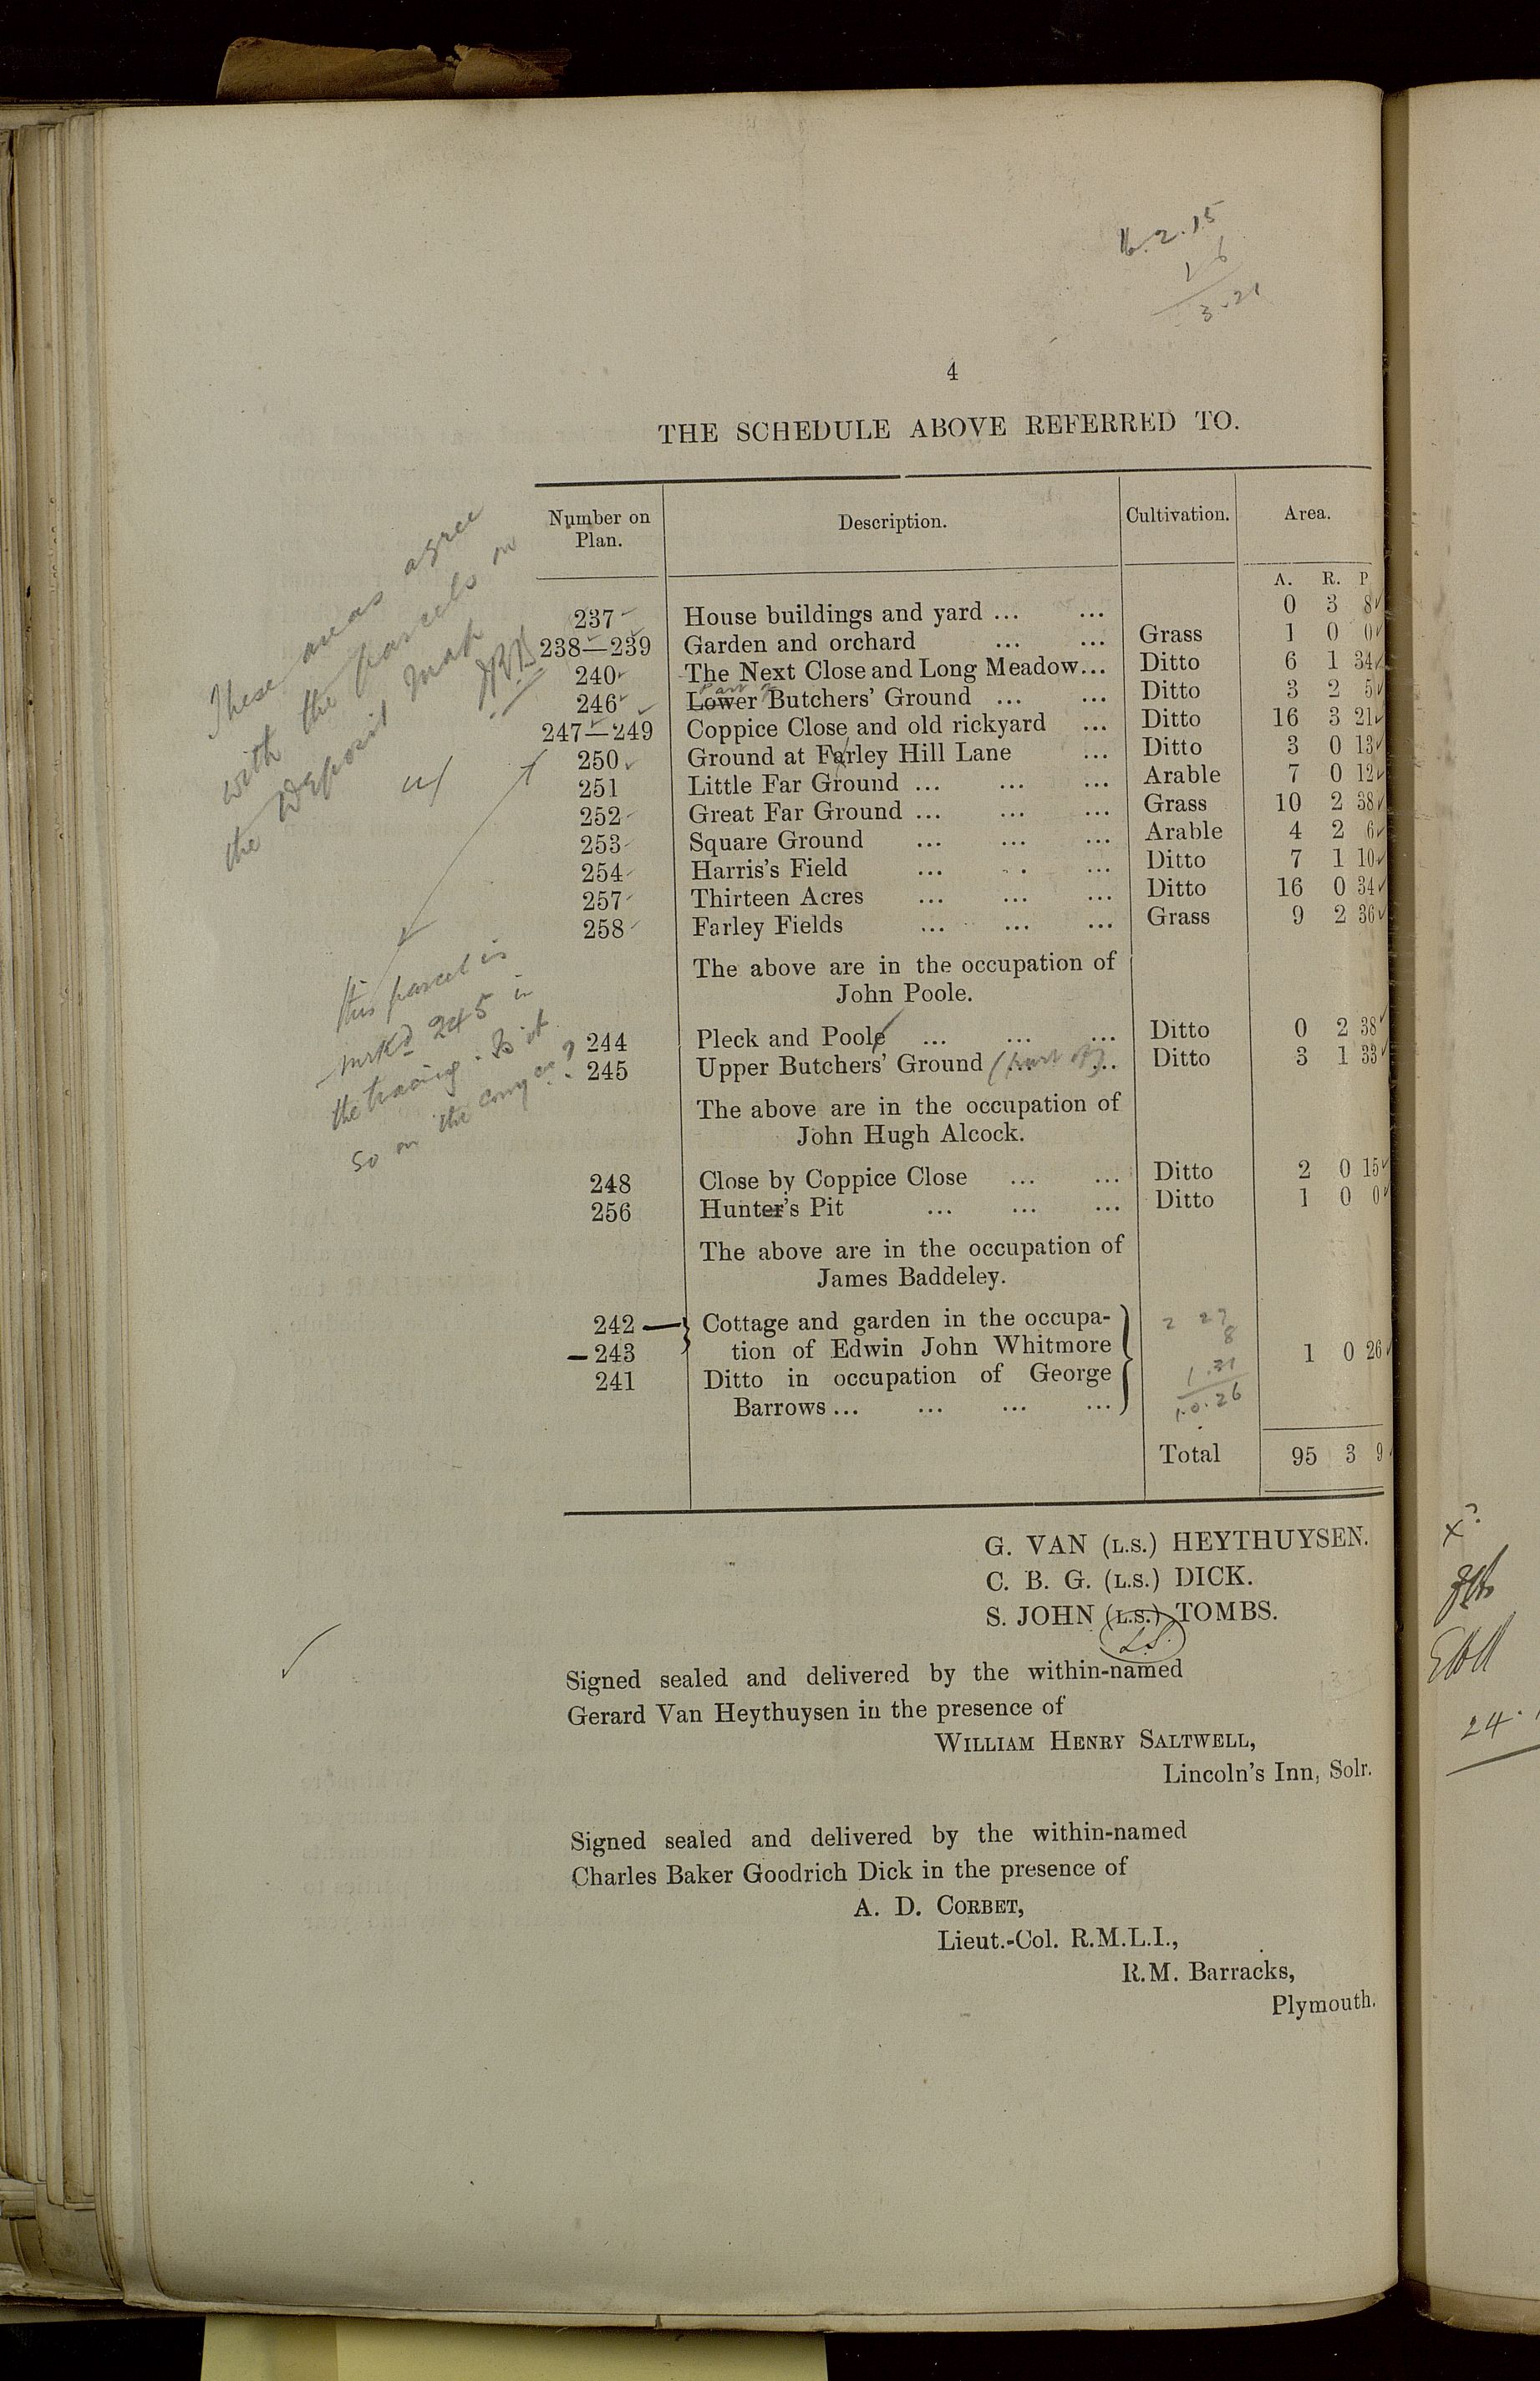 16.2.15
1 6
3.21
4
THE SCHEDULE ABOVE REFERRED TO.
Number on Plan. Description. Cultivation. Area.
A. R. P
237 House buildings and yard ... ... 0 3 8
238—239 Garden and orchard ... ... Grass 1 0 0
240 The Next Close and Long Meadow... Ditto 6 1 34
part of
246 Lower Butchers' Ground ... ... Ditto 3 2 5
247—249 Coppice Close and old rickyard ... Ditto 16 3 21
250 Ground at Farley Hill Lane ... Ditto 3 0 13
251 Little Far Ground ... ... ... Arable 7 0 12
252 Great Far Ground ... ... ... Grass 10 2 38
253 Square Ground ... ... ... Arable 4 2 6
254 Harris's Field ... ... ... Ditto 7 1 10
257 Thirteen Acres ... ... ... Ditto 16 0 34
258 Farley Fields ... ... ... Grass 9 2 36
The above are in the occupation of
John Poole.
244 Pleck and Poole ... ... ... Ditto 0 2 38
245 Upper Butchers' Ground (part of) ... ... Ditto 3 1 33
The above are in the occupation of
John Hugh Alcock.
248 Close by Coppice Close ... ... Ditto 2 0 15
256 Hunter's Pit ... ... ... Ditto 1 0 0
The above are in the occupation of
James Baddeley.
242 — Cottage and garden in the occupa-
— 243 tion of Edwin John Whitmore 1 0 26
241 Ditto in occupation of George
Barrows ... ... ... ...
2 27
8
1.31
1.0.26
Total 95 3 9
These areas agree
with the parcels on
the Deposit Map
this parcel is
mrkd 245 in
the tracing. Is it
so on the conyce?
G. VAN (L.S.) HEYTHUYSEN.
C. B. G. (L.S.) DICK.
S. JOHN (L.S.) TOMBS.
L.S.
Signed sealed and delivered by the within-named
Gerard Van Heythuysen in the presence of
WILLIAM HENRY SALTWELL,
Lincoln's Inn, Solr.
Signed sealed and delivered by the within-named
Charles Baker Goodrich Dick in the presence of
A. D. CORBET,
Lieut.-Col. R.M.L.I.,
R.M. Barracks,
Plymouth.
24.